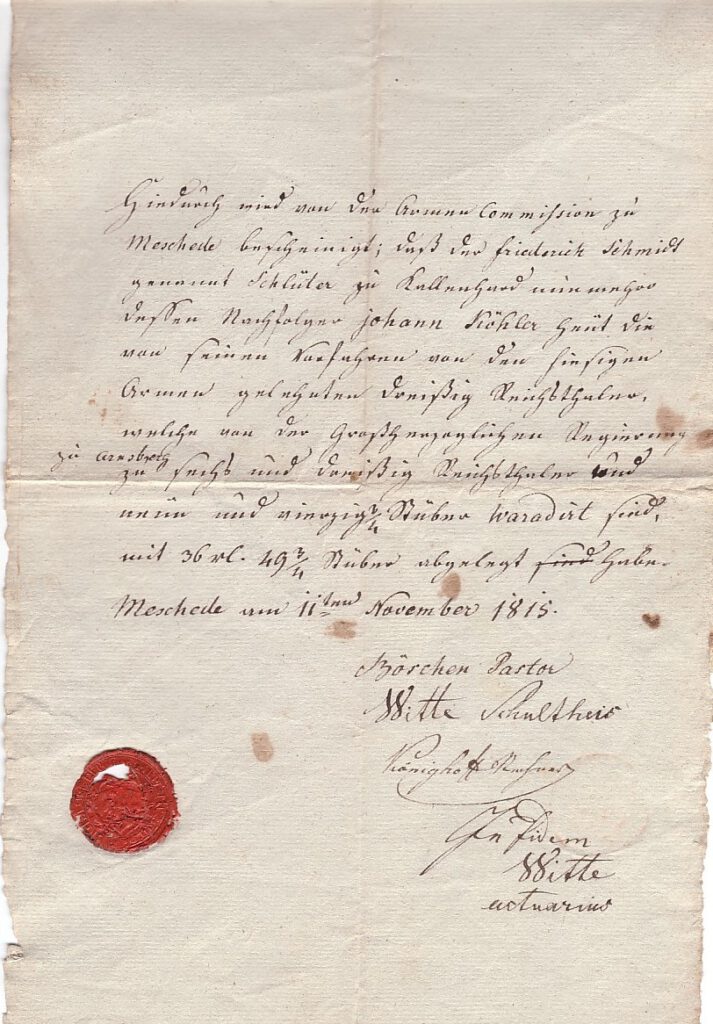 Hiedurch wird von der Armen Commission zu
Meschede bescheinigt; daß der Friederich Schmidt
genannt Schlüter zu Kallenhard nunmehro
dessen Nachfolger Johann Köhler heut die
von seinen Vorfahren von den hiesigen
Armen gelehnten dreißig Reichsthaler,
welche von der Großherzoglichen Regierung
zu Arnsberg
zu sechs und dreißig Reichsthaler und
neun und vierzig 3/4 Stüber waradirt sind,
mit 36 rl. 49 3/4 Stüber abgelegt sind habe.
Meschede am 11ten November 1815.
Böschen Pastor
Witte Schultheis
Könighoff
In Fidem
Witte
actuarius